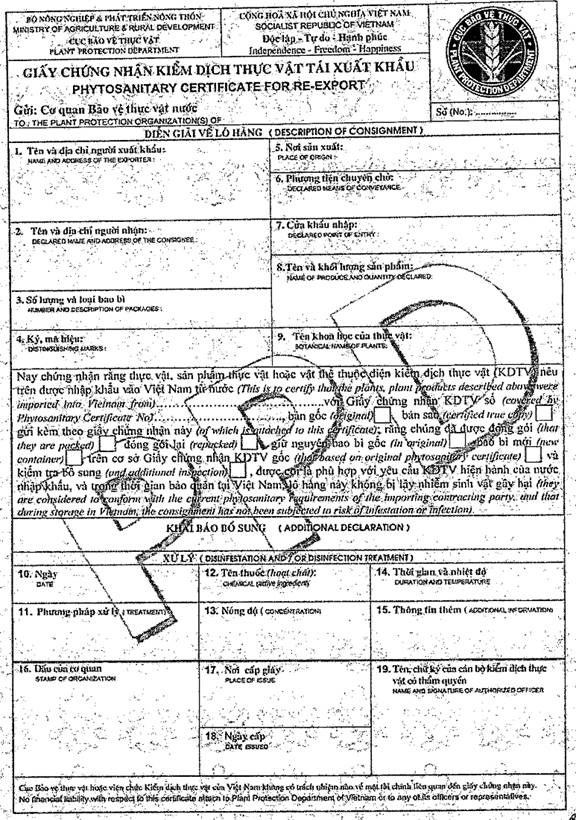 BỘ NÔNG NGHIỆP & PHÁT TRIỂN NÔNG THÔN
MINISTRY OF AGRICULTURE & RURAL DEVELOPMENT
CỤC BẢO VỆ THỰC VẬT
PLANT PROTECTION DEPARTMENT
CỘNG HOÀ XÃ HỘI CHỦ NGHĨA VIỆT NAM
SOCIALIST REPUBLIC OF VIETNAM
Độc lập - Tự do - Hạnh phúc
Independence - Freedom - Happiness
CỤC BẢO VỆ THỰC VẬT
PLANT PROTECTION DEPARTMENT
GIẤY CHỨNG NHẬN KIỂM DỊCH THỰC VẬT TÁI XUẤT KHẨU
PHYTOSANITARY CERTIFICATE FOR RE-EXPORT
Gửi: Cơ quan Bảo vệ thực vật nước
TO : THE PLANT PROTECTION ORGANIZATION(S) OF
Số (No.): ..............
DIỄN GIẢI VỀ LÔ HÀNG ( DESCRIPTION OF CONSIGNMENT )
1. Tên và địa chỉ người xuất khẩu:
NAME AND ADDRESS OF THE EXPORTER :
5. Nơi sản xuất:
PLACE OF ORIGIN :
6. Phương tiện chuyên chở:
DECLARED MEANS OF CONVEYANCE
2. Tên và địa chỉ người nhận:
DECLARED NAME AND ADDRESS OF THE CONSIGNEE :
7. Cửa khẩu nhập:
DECLARED POINT OF ENTRY :
8.Tên và khối lượng sản phẩm:
NAME OF PRODUCE AND QUANTITY DECLARED
3. Số lượng và loại bao bì
NUMBER AND DESCRIPTION OF PACKAGES :
4. Ký, mã hiệu:
DISTINGUISHING MARKS :
9. Tên khoa học của thực vật:
BOTANICAL NAME OF PLANTS:
Nay chứng nhận rằng thực vật, sản phẩm thực vật hoặc vật thể thuộc diện kiểm dịch thực vật (KDTV) nêu
trên được nhập khẩu vào Việt Nam từ nước (This is to certify that the plants, plant products described above were
imported into Vietnam from)..............................với Giấy chứng nhận KDTV số (covered by
Phytosanitary Certificate No)..............................., bản gốc (original) bản sao (certified true copy)
gửi kèm theo giấy chứng nhận này (of which is attached to this certificate); rằng chúng đã được đóng gói (that
they are packed) đóng gói lại (repacked) giữ nguyên bao bì gốc (in original) bao bì mới (new
container) trên cơ sở Giấy chứng nhận KDTV gốc (that based on original phytosanitary certificate) và
kiểm tra bổ sung (and additional inspection) , được coi là phù hợp với yêu cầu KDTV hiện hành của nước
nhập khẩu, và trong thời gian bảo quản tại Việt Nam lô hàng này không bị lây nhiễm sinh vật gây hại (they
are considered to conform with the current phytosanitary requirements of the importing contracting party, and that
during storage in Vietnam, the consignment has not been subjected to risk of infestation or infection).
KHAI BÁO BỔ SUNG ( ADDITIONAL DECLARATION )
XỬ LÝ ( DISINFESTATION AND / OR DISINFECTION TREATMENT )
10. Ngày
DATE
12. Tên thuốc (hoạt chất):
CHEMICAL (active ingredients)
14. Thời gian và nhiệt độ
DURATION AND TEMPERATURE
11. Phương pháp xử lý ( TREATMENT )
13. Nồng độ ( CONCENTRATION )
15. Thông tin thêm ( ADDITIONAL INFORMATION )
16. Dấu của cơ quan
STAMP OF ORGANIZATION
17. Nơi cấp giấy
PLACE OF ISSUE
19. Tên, chữ ký của cán bộ kiểm dịch thực
vật có thẩm quyền
NAME AND SIGNATURE OF AUTHORIZED OFFICER
18. Ngày cấp
DATE ISSUED
Cục Bảo vệ thực vật hoặc viên chức Kiểm dịch thực vật của Việt Nam không có trách nhiệm nào về mặt tài chính liên quan đến giấy chứng nhận này.
No financial liability with respect to this certificate attach to Plant Protection Department of Vietnam or to any of its officers or representatives.